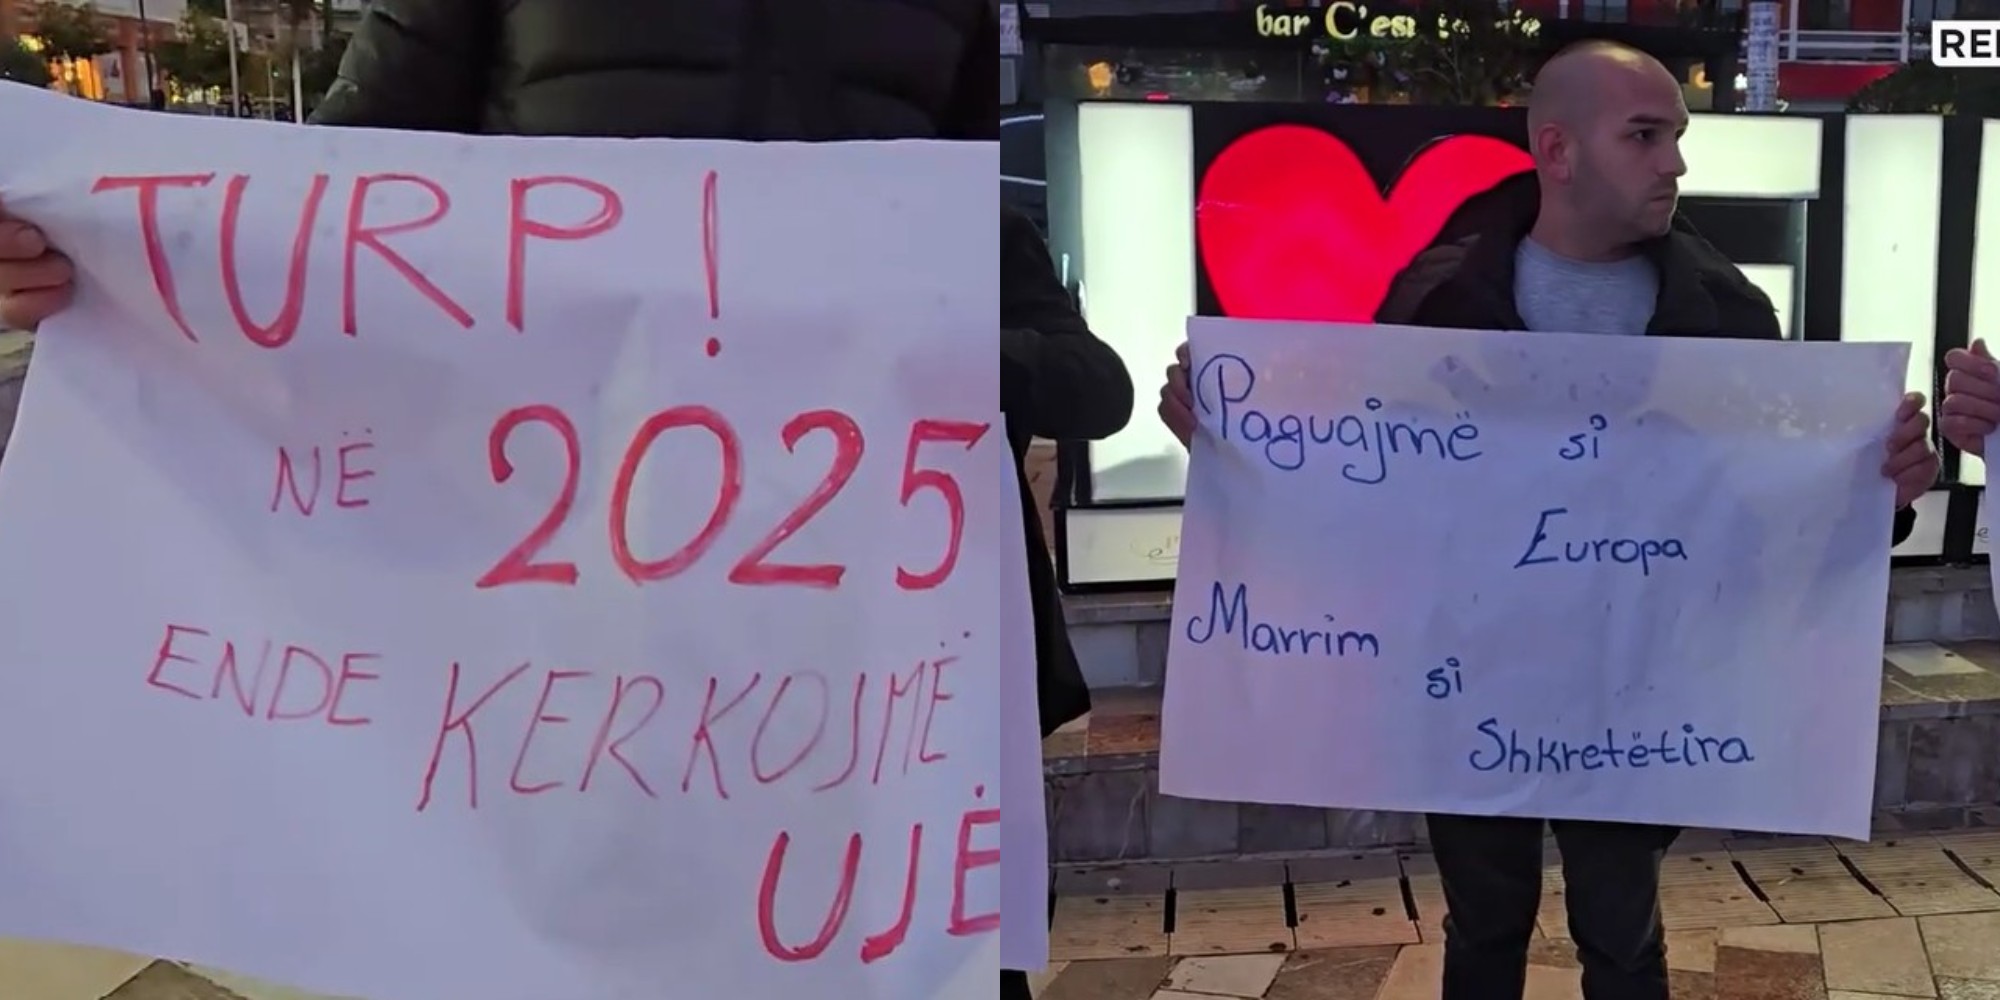 TURP !
NË 2025
ENDE KERKOJMË
UJË
bar C'est
Paguajmë si
Europa
Marrim
si
Shkretëtira